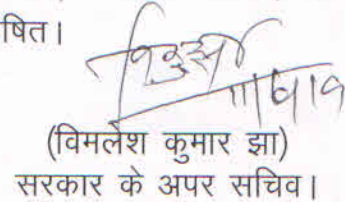 षित।
(विमलेश कुमार झा)
सरकार के अपर सचिव।